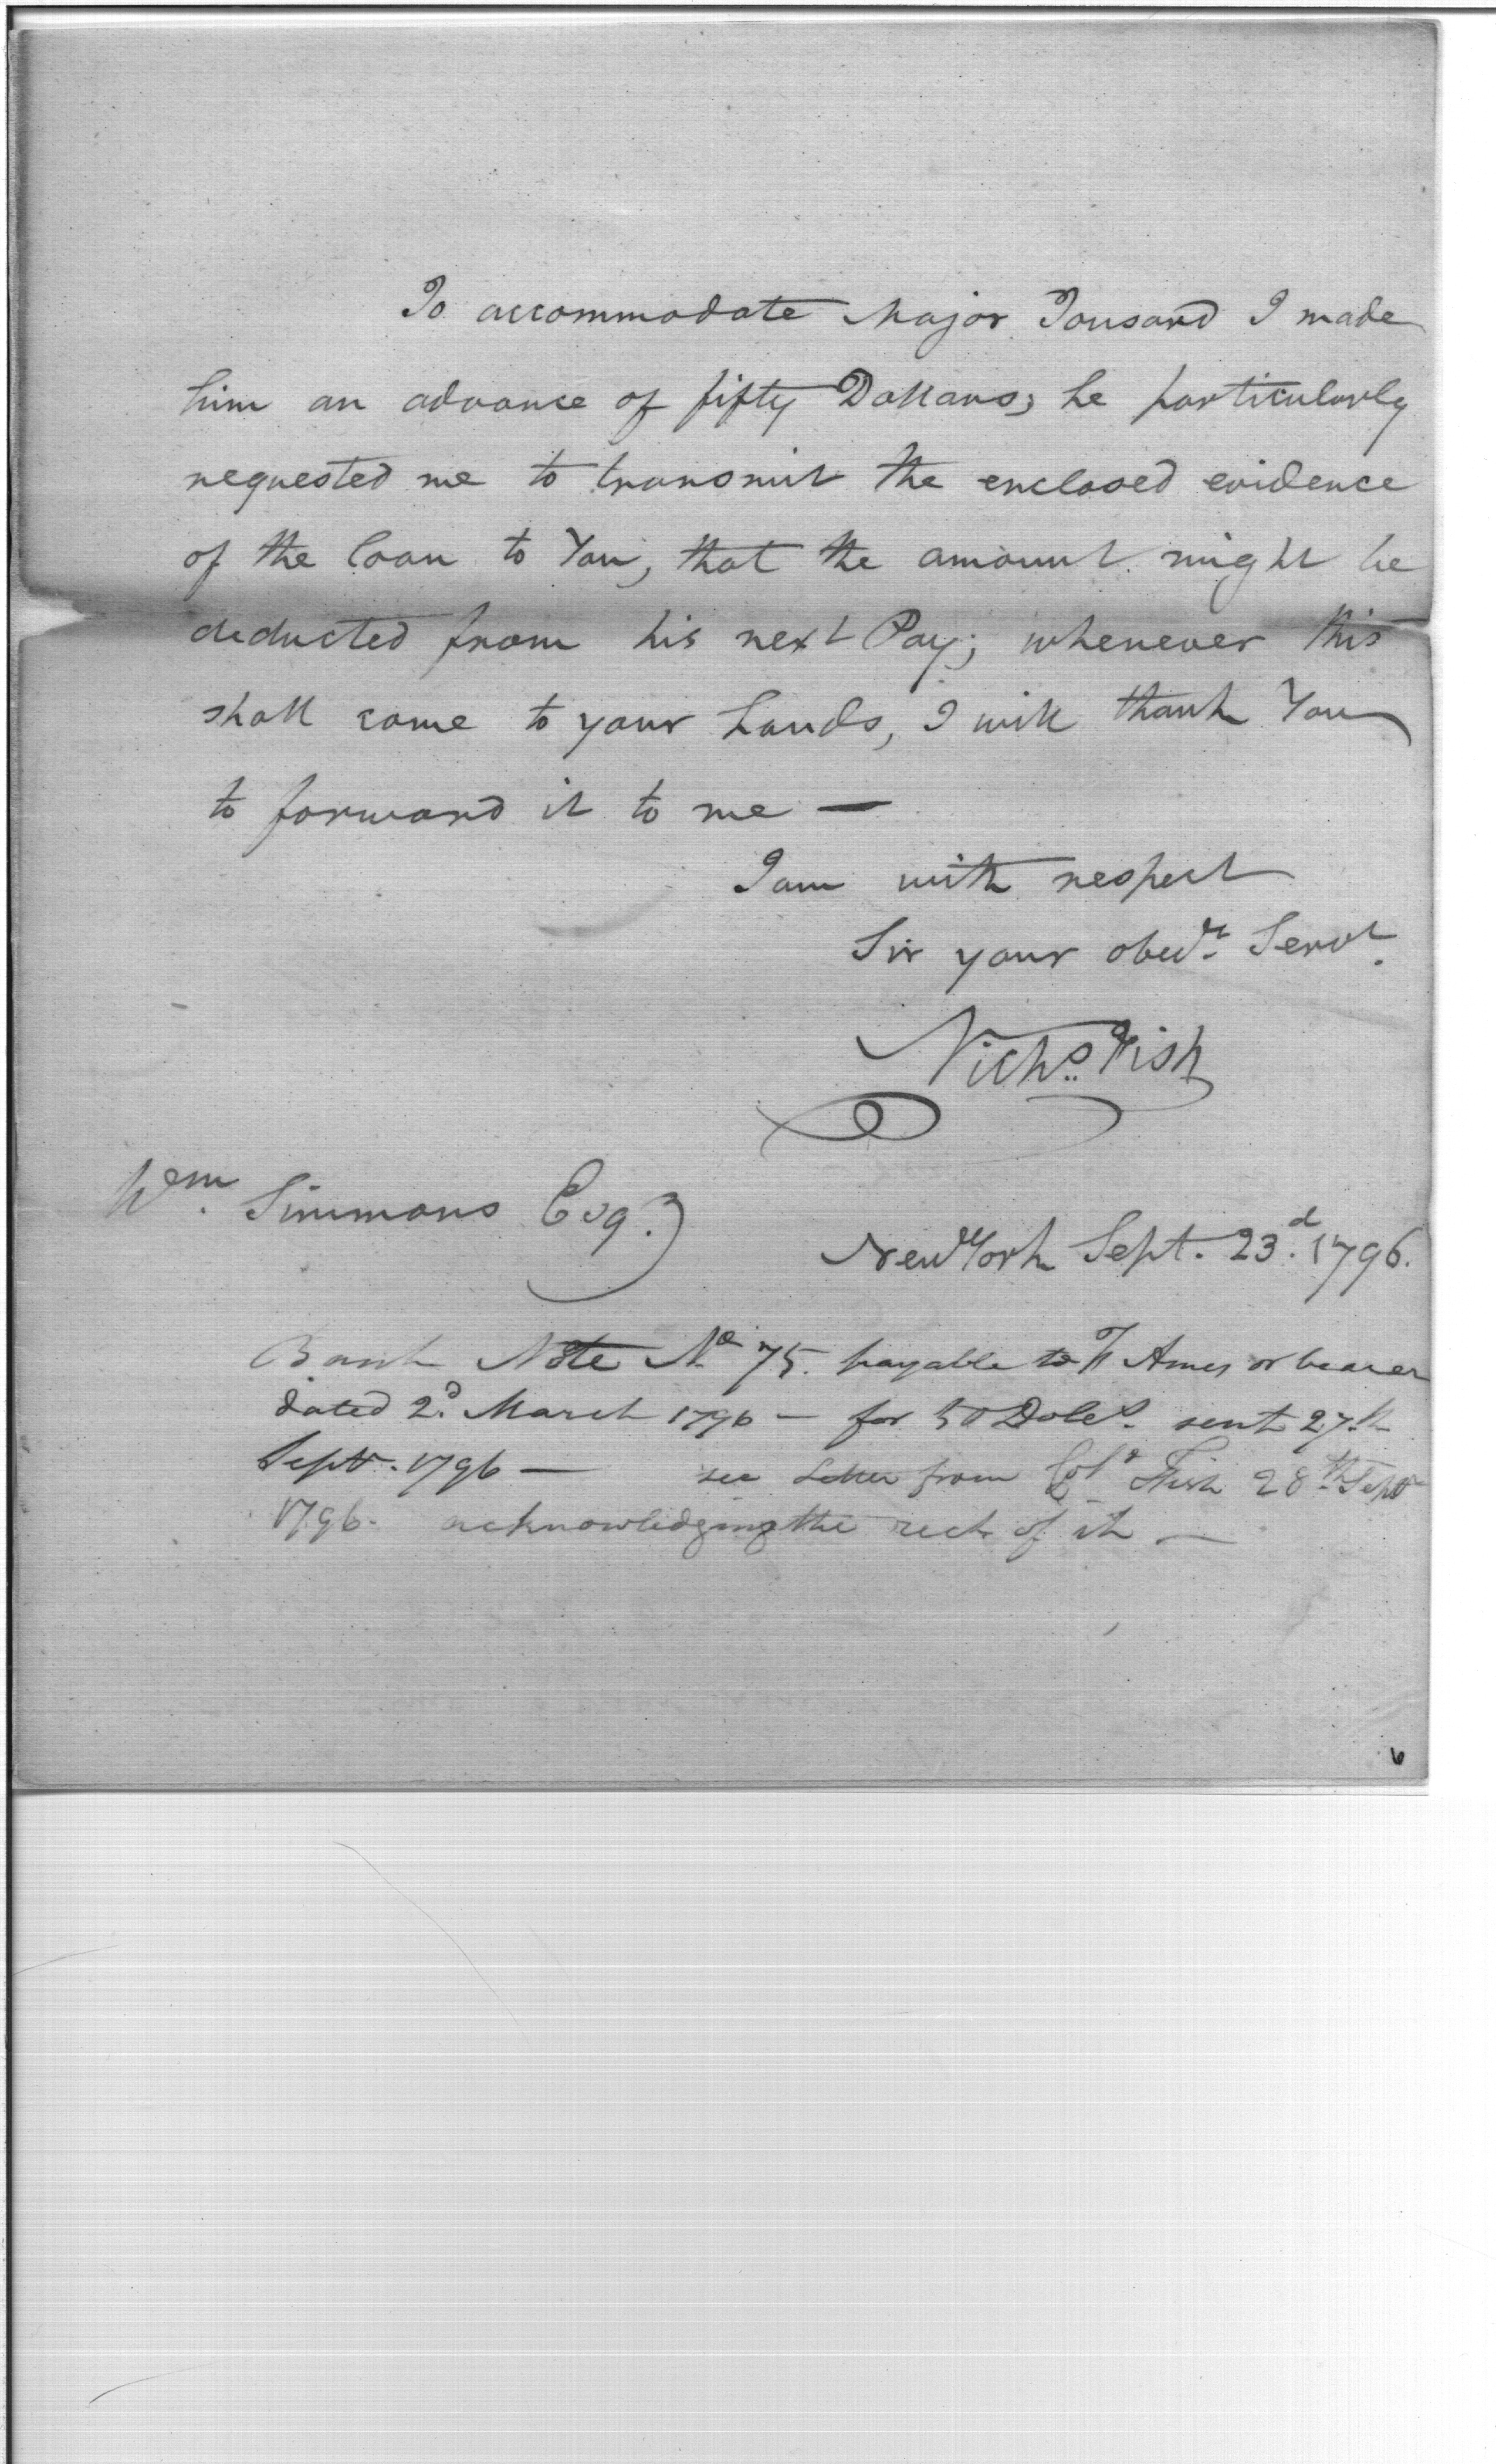 To accommodate Major Tousard I made
him an advance of fifty Dollars; he particularly
requested me to transmit the enclosed evidence
of the loan to You, that the amount might be
deducted from his next Pay; whenever this
shall come to your hands, I will thank You
to forward it to me —
I am with respect
Sir your obedt. Servt.
Nichs. Fish
Wm. Simmons Esq.
New York Sept. 23d. 1796.
Bank Note No 75. payable to Ames or bearer
dated 2d. March 1796 — for 50 Dolls. sent 27th
Sept. 1796 — see Letter from Colo Fish 28th Sept
1796. acknowledging the rect of it —
6